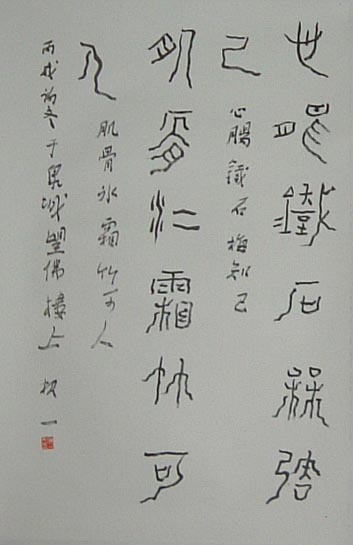 心腸鐵石梅知
己
心腸鐵石梅知己
肌骨冰霜竹可
人
肌骨冰霜竹可人
丙戌初冬于城望佛樓上一